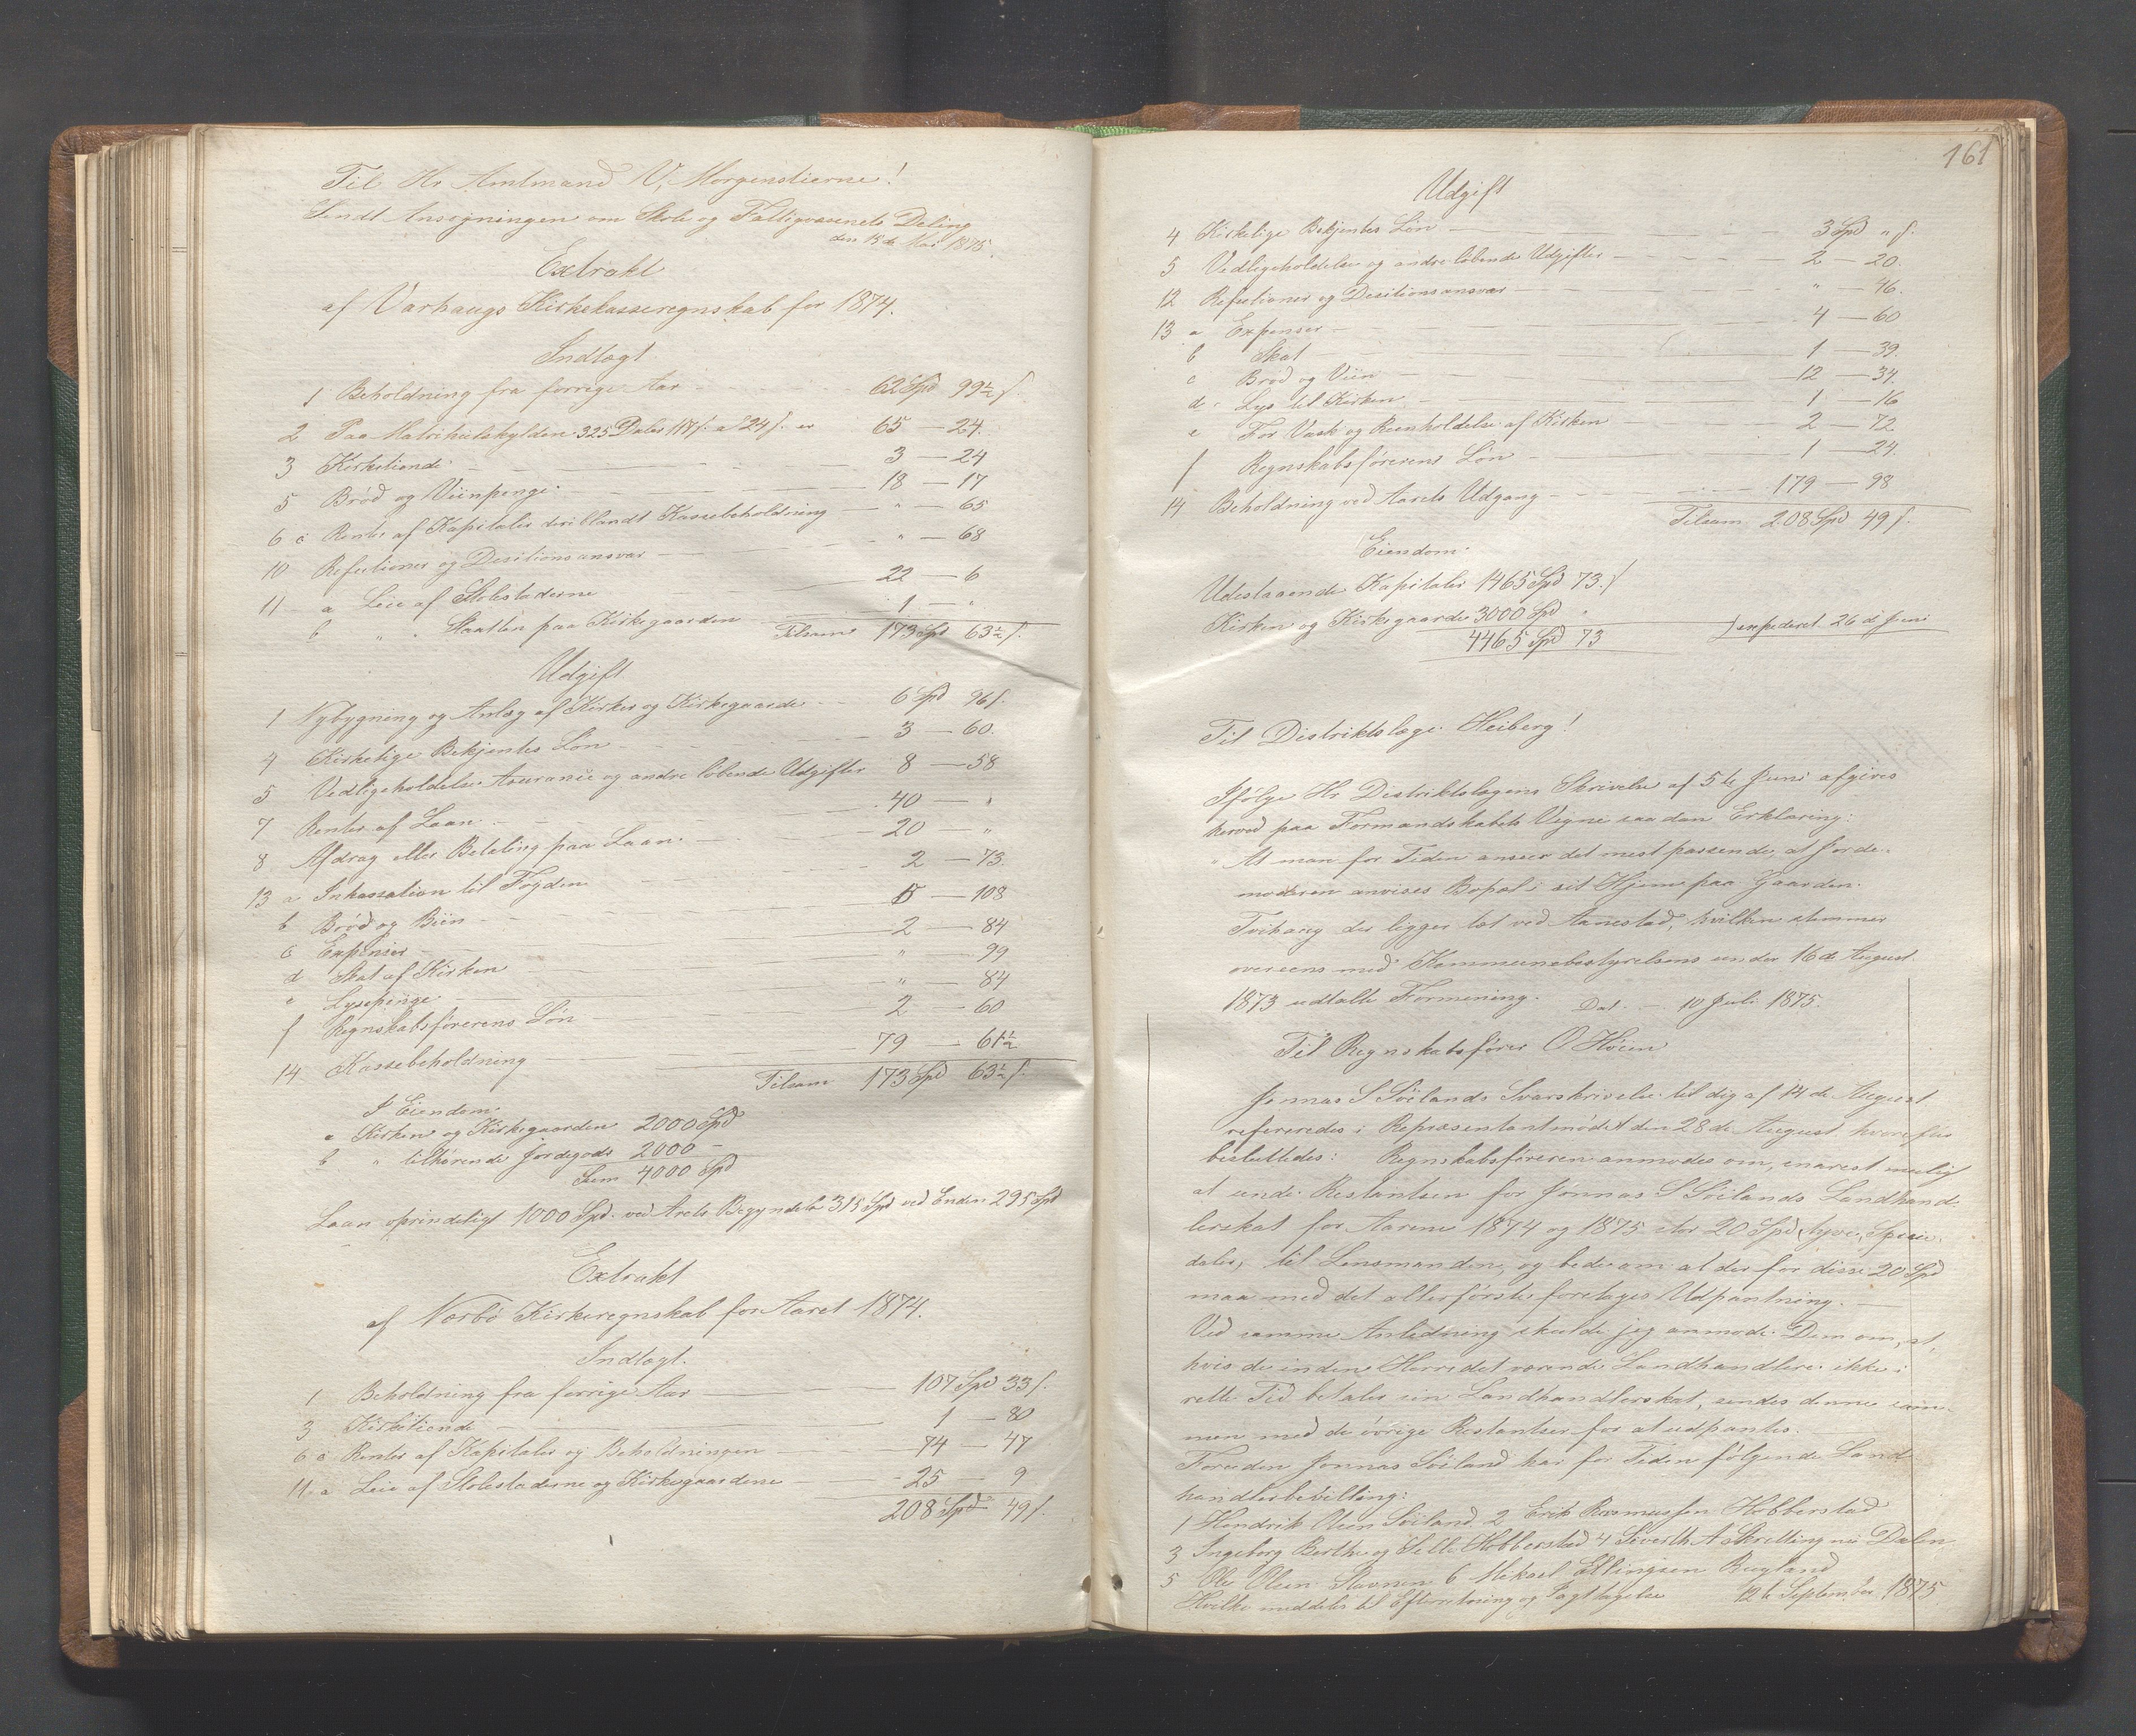 Til Hr Amtmand V, Morgenstierne!
Sendt Ansøgningen om Skole og Fattigvæsenets Deling
den 15de Mai 1875.
Extrakt
af Varhaugs Kirkekasseregnskab for 1874.
Indtægt
1 Beholdning fra forrige Aar - 62 Spd 99½ ſ.
2 Paa Matrikulskylden 325 Daler 118 ſ. a 24 ſ. er 65 - 24.
3 Kirketiende - 3 - 24
5 Brød og Viinpenge. 18 - 17
6 c Renter af Kapitaler deriblandt Kassebeholdning - " - 65
10 Refutioner og Desitionsansvar - " - 68
11 - a Leie af Stolestaderne 22 - 6
b " " Slaatten paa Kirkegaarden 1 - "
Tilsam 173 Spd 63½ ſ.
Udgift
1 Nybygning og Anlæg af Kirker og Kirkegaarde - 6 Spd 96 ſ.
4 Kirkelige Betjentes Løn - 3 - 60.
5 Vedligeholdelse Asurance og andre løbende Udgifter 8 - 58
7 Renter af Laan - 40 - "
8 Afdrag eller Betaling paa Laan. - 20 - "
13 a Inkassation til Fogden 2 - 73.
b Brød og Viin - 5 - 108
c Expenser - 2 - 84
d Skat af Kirken " - 99
e Lysepenge - " - 84
f Regnskabsførerens Løn - 2 - 60
14 Kassebeholdning - 79 - 61½
Tilsam 173 Spd 63½ ſ.
I Eiendom.
a Kirken og Kirkegaarden 2000 Spd
b " tilhørende Jordegods 2000 -
Sum 4000 Spd
Laan oprindeligt 1000 Spd. ved Arets Begyndelse 315 Spd ved Enden 295 Spd
Extrakt
af Nærbø Kirkeregnskab for Aaret 1874.
Indtægt.
1 Beholdning fra forrige Aar - 107 Spd 33 ſ.
3 Kirketiende - 1 - 80
6 c Renter af Kapitaler og Beholdningen - 74 - 47
11. a Leie af Stolestaderne og Kirkegaardene - 25 - 9
208 Spd 49 ſ.
161
Udgift
4 Kirkelige Betjentes Løn - 3 Spd " ſ.
5 Vedligeholdelse og andre løbende Udgifter - 2 - 20.
12 Refutioner og Desitionsansvar - " - 96.
13 a Expenser - 4 - 60
b Skat 1 - 39.
c Brød og Viin - 12 - 34.
d Lys til Kirken - 1 - 16
e For Vask og Reenholdelse af Kirken - 2 - 72.
f Regnskabsførerens Løn - 1 - 24.
14 Beholdning ved Aarets Udgang - 179 - 98
Tilsam 208 Spd 49 ſ.
Eiendom.
Udestaaende Kapitaler 1465 Spd 73. ſ
Kirken og Kirkegaarde 3000 Spd "
4465 Spd 73
expederet 26de Juni
Til Distriktslæge Heiberg!
Ifølge Hr Distriktslægens Skrivelse af 5te Juni afgives
herved paa Formandskabets Vegne saadan Erklæring:
"At man for Tiden anseer det mest passende, at Jorde-
moderen anvises Bopæl i sit Hjem paa Gaarden
Tvihaug der ligger tæt ved Aanestad, hvilken stemmer
overeens med Kommunebestyrelsens under 16de August
1873 udtalte Formening. Dat. - 10 Juli 1875.
Til Regnskabsfører O Høien
Jonnas S Søilands Svarskrivelse til dig af 14de August
refereredes i Repræsentantmødet den 28de August hvorefter
besluttedes: Regnskabsføreren anmodes om, snarest mulig
at sende Restantsen for Jonnas S Søilands Landhand
lerskat for Aarene 1874 og 1875 stor 20 Spd, tyve, Specie-
daler, til Lensmanden, og bede om at der for disse 20 Spd
maa med det allerførste foretages Udpantning. -
Ved samme Anledning skulde jeg anmode Dem om, at,
hvis de inden Herredet værende Landhandlere ikke i
rette Tid betaler sin Landhandlerskat, sendes denne sam-
men med de øvrige Restantser for at udpantes.
Foruden Jonnas Søiland har for Tiden følgende Land
handlerbevilling:
1 Hendrik Olsen Søiland 2 Erik Rasmussen Hobberstad
3 Ingeborg Berthe og Sille Hobberstad 4 Sivert A Skretting nu Dalen
5 Ole Olsen Stavnem 6 Mikael Ellingsen Rugland
Hvilke meddeles til Efterretning og Iagttagelse 12te September 1875